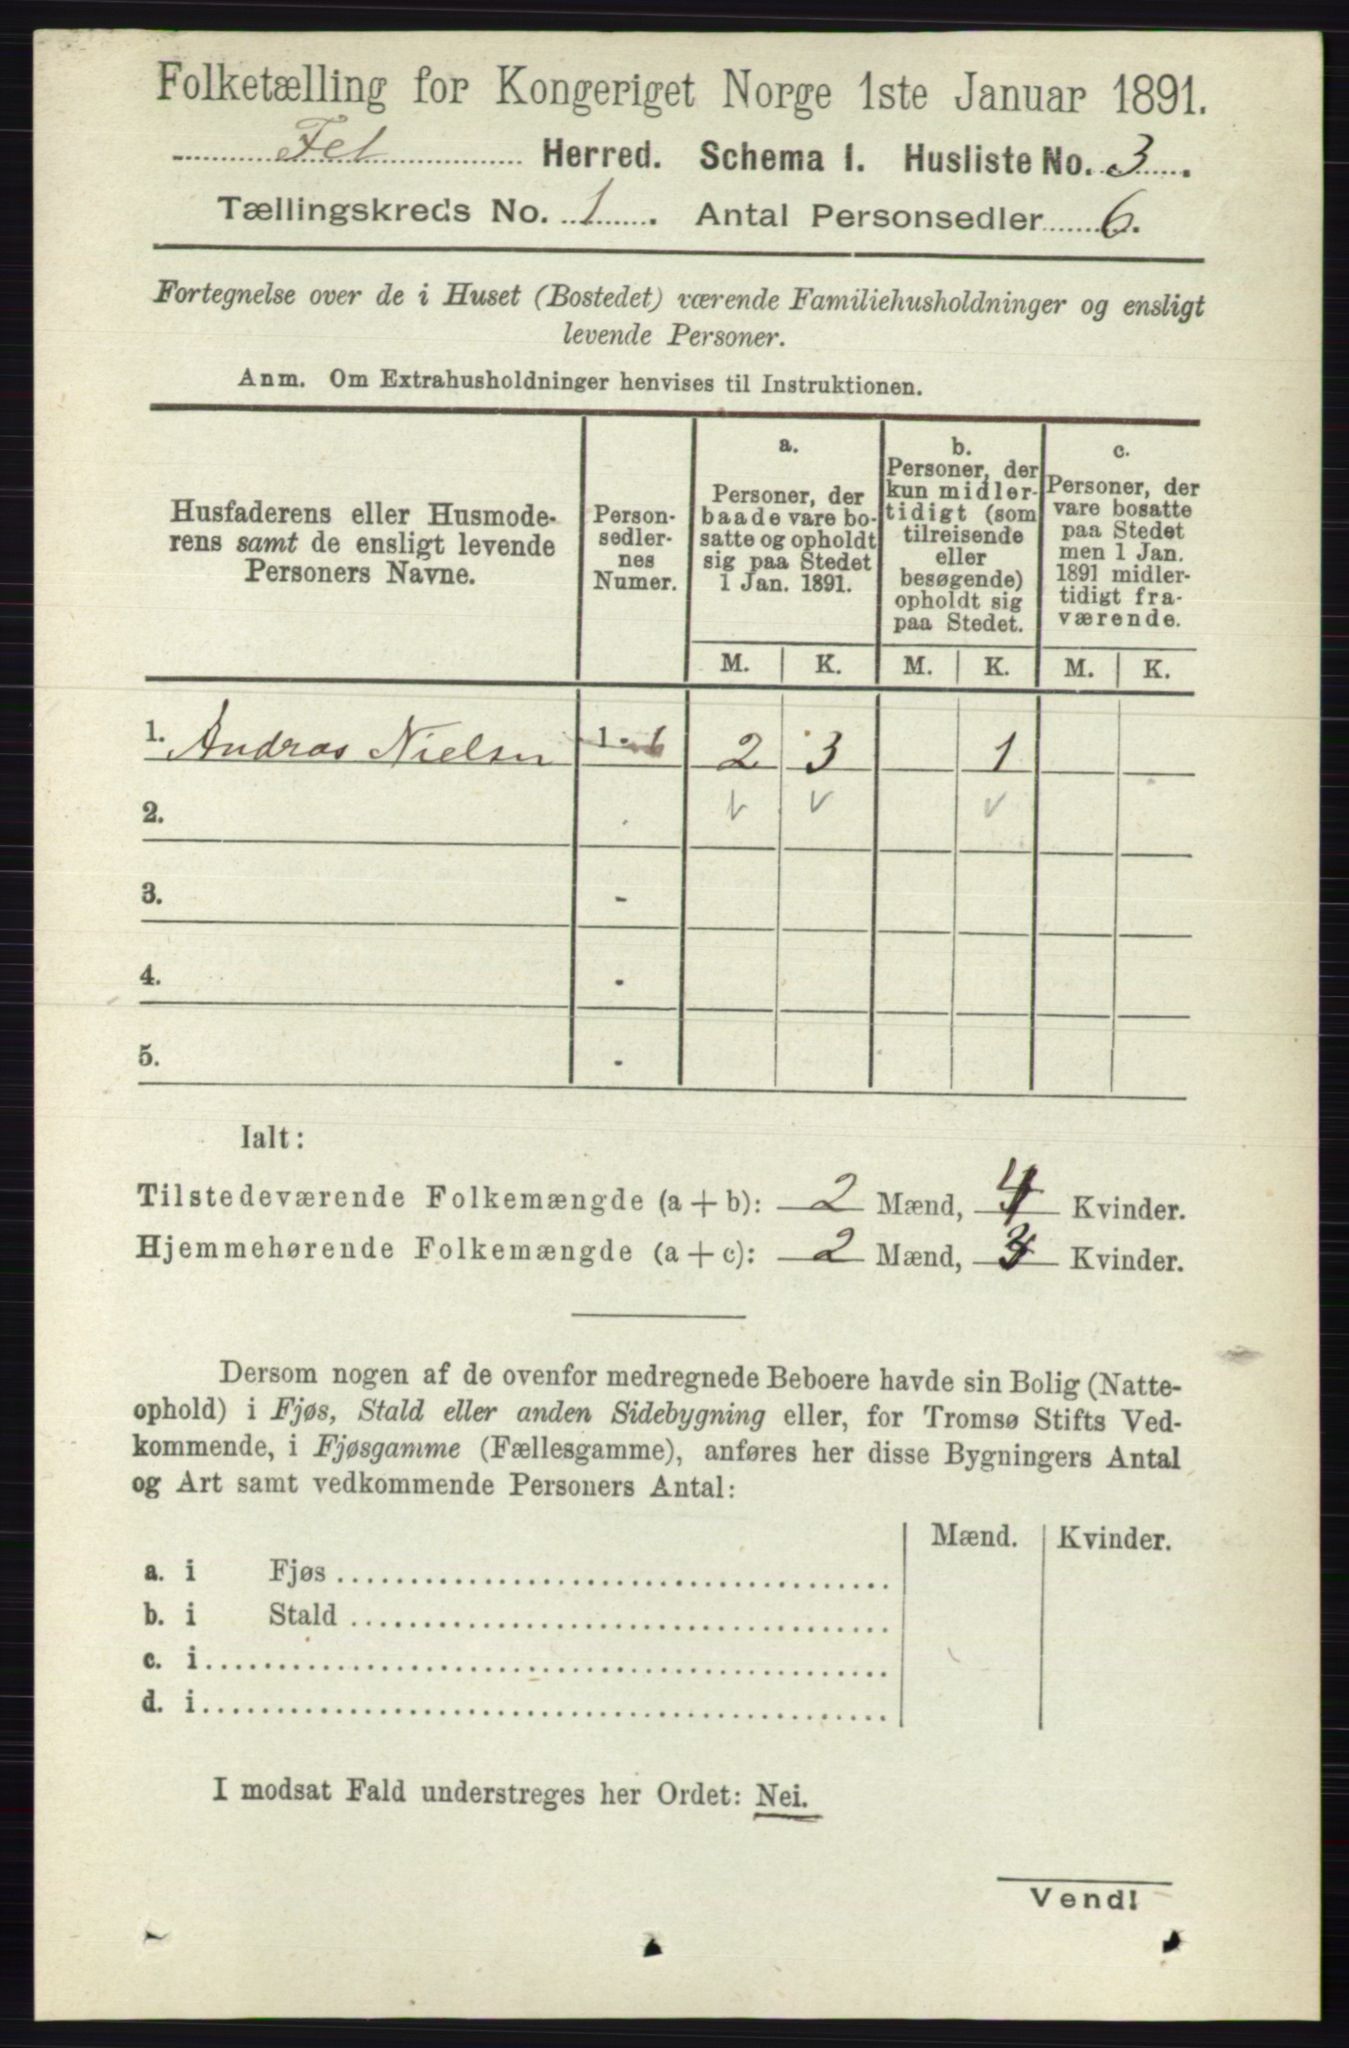 Folketælling for Kongeriget Norge 1ste Januar 1891.
Fet Herred. Schema 1. Husliste No. 3.
Tællingskreds No. 1. Antal Personsedler 6.
Fortegnelse over de i Huset (Bostedet) værende Familiehusholdninger og ensligt
levende Personer.
Anm. Om Extrahusholdninger henvises til Instruktionen.
Husfaderens eller Husmode-
rens samt de ensligt levende
Personers Navne.
Person-
sedler-
nes
Numer.
a.
Personer, der
baade vare bo-
satte og opholdt
sig paa Stedet
1 Jan. 1891.
b.
Personer, der
kun midler-
tidigt (som
tilreisende
eller
besøgende)
opholdt sig
paa Stedet.
c.
Personer, der
vare bosatte
paa Stedet
men 1 Jan.
1891 midler-
tidigt fra-
værende.
M. K. M. K. M. K.
1. Andras Nielsen 1-6 2 3 1
2.
3. -
4. -
5. -
Ialt:
Tilstedeværende Folkemængde (a + b): 2 Mænd, 4 Kvinder.
Hjemmehørende Folkemængde (a + c): 2 Mænd, 3 Kvinder.
Dersom nogen af de ovenfor medregnede Beboere havde sin Bolig (Natte-
ophold) i Fjøs, Stald eller anden Sidebygning eller, for Tromsø Stifts Ved-
kommende, i Fjøsgamme (Fællesgamme), anføres her disse Bygningers Antal
og Art samt vedkommende Personers Antal:
Mænd. Kvinder.
a. i Fjøs
b. i Stald
c. i
d. i
I modsat Fald understreges her Ordet: Nei.
Vend!